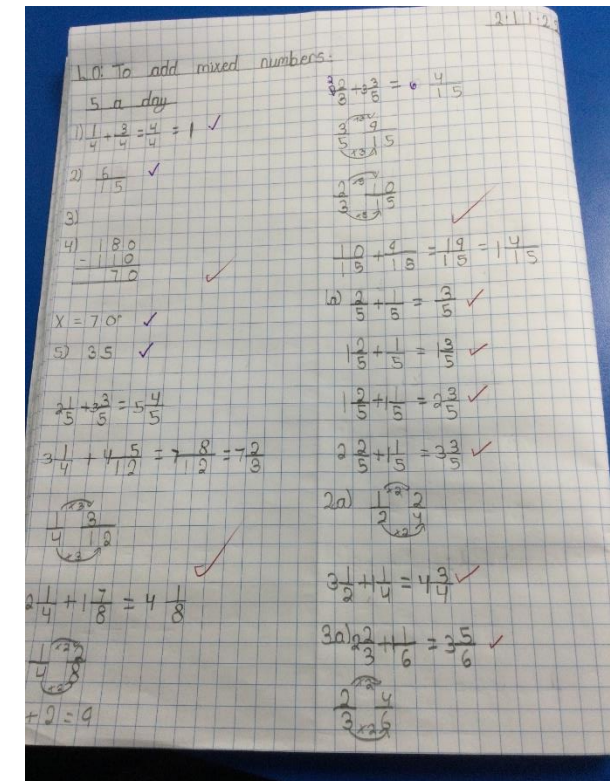 2.11.2
L.O: To add mixed numbers.
5 a day
1) 1/4 + 3/4 = 4/4 = 1 ✓
2) 6/15 ✓
3)
4) 180
- 110
70 ✓
x = 70° ✓
5) 35 ✓
2 1/5 + 3 3/5 = 5 4/5
3 1/4 + 4 5/12 = 7 8/12 = 7 2/3
×3
1/4 3/12
×3
2 1/4 + 1 7/8 = 4 1/8 ✓
×2
1/4 2/8
×2
+ 2 = 9
3 2/3 + 3 3/5 = 6 4/15
×3
3/5 9/15
×3
×5
2/3 10/15
×5
10/15 + 9/15 = 19/15 = 1 4/15 ✓
b) 2/5 + 1/5 = 3/5 ✓
1 2/5 + 1/5 = 1 3/5 ✓
1 2/5 + 1 1/5 = 2 3/5 ✓
2 2/5 + 1 1/5 = 3 3/5 ✓
2a) ×2
1/2 2/4
×2
3 1/2 + 1 1/4 = 4 3/4 ✓
3a) 2 2/3 + 1 1/6 = 3 5/6 ✓
×2
2/3 4/6
×2